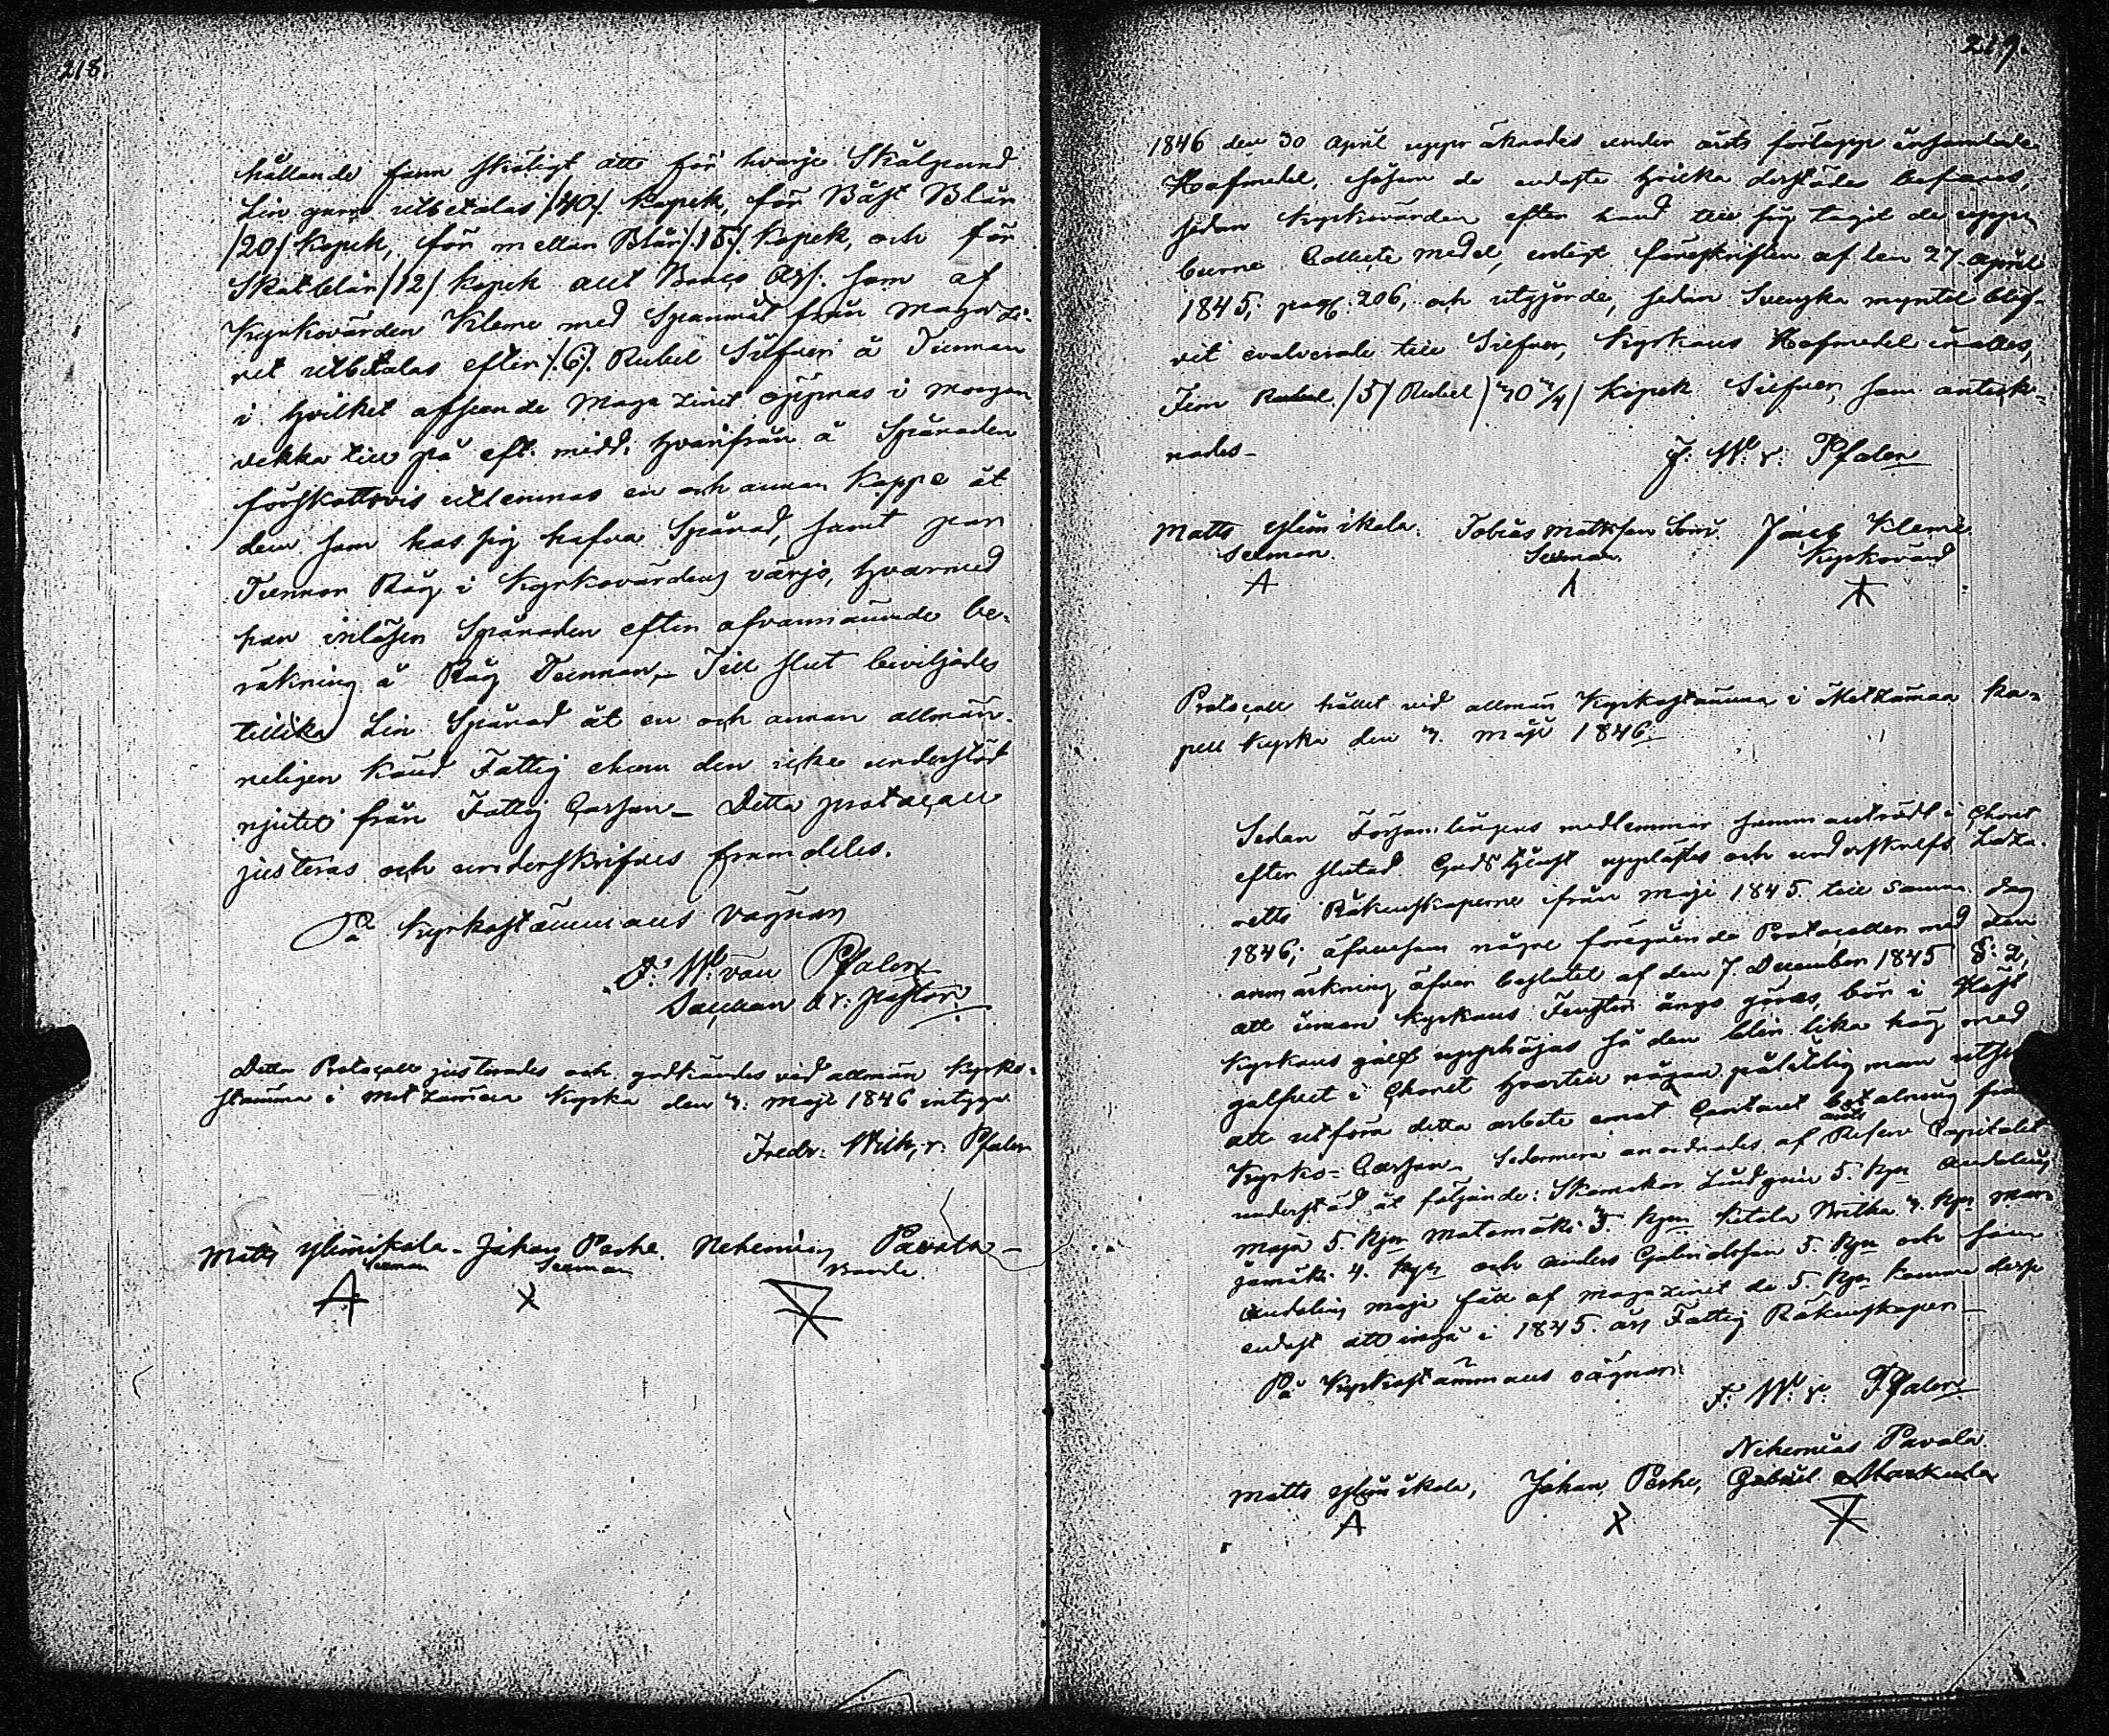 218.
hållande fann skäligt att för hvarje Skålpund
Lin garn utbetalas /:40:/ Kopek, för Bäst Blår
/20/ Kopek, för mellan Blår /:15:/ Kopek, och för
Skatblår /12/ Kopek allt Banco Ass. som af
Kyrkovärden Kleme med Spanmål från Magazi-
net utbetalas efter /:6:/ Rubel Silfver à Tunnan
i hvilket afseende Magazinet öppnas i morgon
vekka till på eft. midd. hvarifrån å Spånaden
förskottsvis utlemnas en och annan Kappe åt
dem som hos sig hafva Spånad, samt par
Tunnor Råg i Kyrkovärdens värjo, hvarmed
han inlösen Spånaden efter ofvannämnde be-
räkning à Råg Tunnan, – Till slut beviljades
tillika Lin Spånad åt en och annan allmän-
neligen känd Fattig ehuru den icke understöd
njutit från Fattig Cassan – Detta protocoll
justeras och underskrifves framdeles.
På Kyrkostämmans vägnar
F. W. von Pfaler
Sacellan v. pastor
Detta Protocoll justerades och godkändes vid allmän Kyrko-
stämma i Metzämaa Kyrka den 7. Maji 1846 intyga
Fredr. Wilh. v. Pfaler
Matts Ylinikala – Johan Peshe. Nehemias Pavola –
Sexman Sexman Bonde.
219.
1846 den 30 April uppräknades under årets förlopp insamlade
Hafmedel, såsom de endaste hvilka derstädes befanns,
sedan Kyrkovärden efter hand till sig tagit de uppe
burne Collecte medel, enligt föreskriften af den 27. April
1845, pag. 206, och utgjorde, sedan Svenska myntet blif-
vit evalverade till Silfver, Kyrkans Hafmedel inalles,
Fem /5/ Rubel /70 3/4/ Kopek Silfver, som anteck-
nades –
F. W. v. Pfaler
Matts Ylinikala. Tobias Mattsson Jacob Kleme
Sexman. Sexman. Kyrkovärd
Protocoll hållet vid allmän Kyrkostämma i Metzämaa Ka-
pell Kyrka den 7. Maji 1846.
Sedan Församlingens medlemmar sammanträdt i Choret
efter slutad Gudstjenst upplästes och underskrefs
Räkenskaperne ifrån Maji 1845 till samma dag
1846; äfvensom några föregående Protocoller med den
anmärkning äfven beslutet af den 7. December 1845 §: 2,
att innan Kyrkans Fenster ånyo göras, bör i Höst
Kyrkans golf upphöjas så den blir lika hög med
golfvet i Choret hvartill någon pålitelig man
att utföra detta arbete emot Contant betalning från
Kyrko-Cassan – Sedermera anordnades af årets Reserv Capitalet
understöd åt följande: Skomakar Lindgren 5. Kpr
Maja 5. Kpr Matomäki 3. Kpr Ketola Britha 4. Kpr
4. Kpr och Anders Gabrielsson 5. Kpr och som
Maja fått af Magazinet de 5. Kpr
endast att ingå i 1845. års Fattig Räkenskaper –
På Kyrkostämmans vägnar:
F. W. v. Pfaler
Nehemias Pavola.
Matts Ylinikala, Johan Peshe, Gabriel Markula